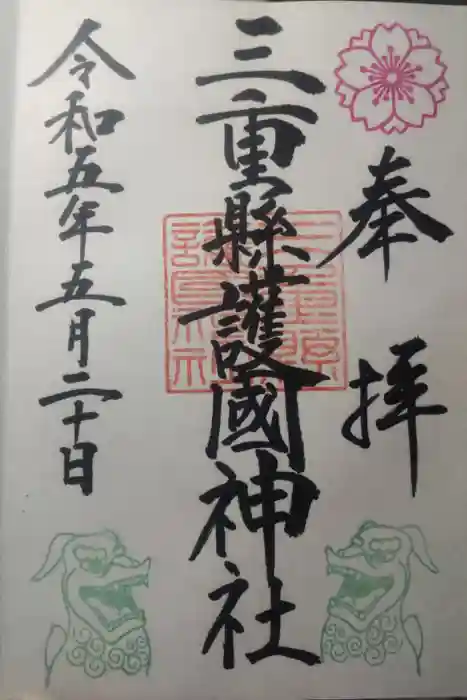 奉拝
三重縣護國神社
令和五年五月二十日